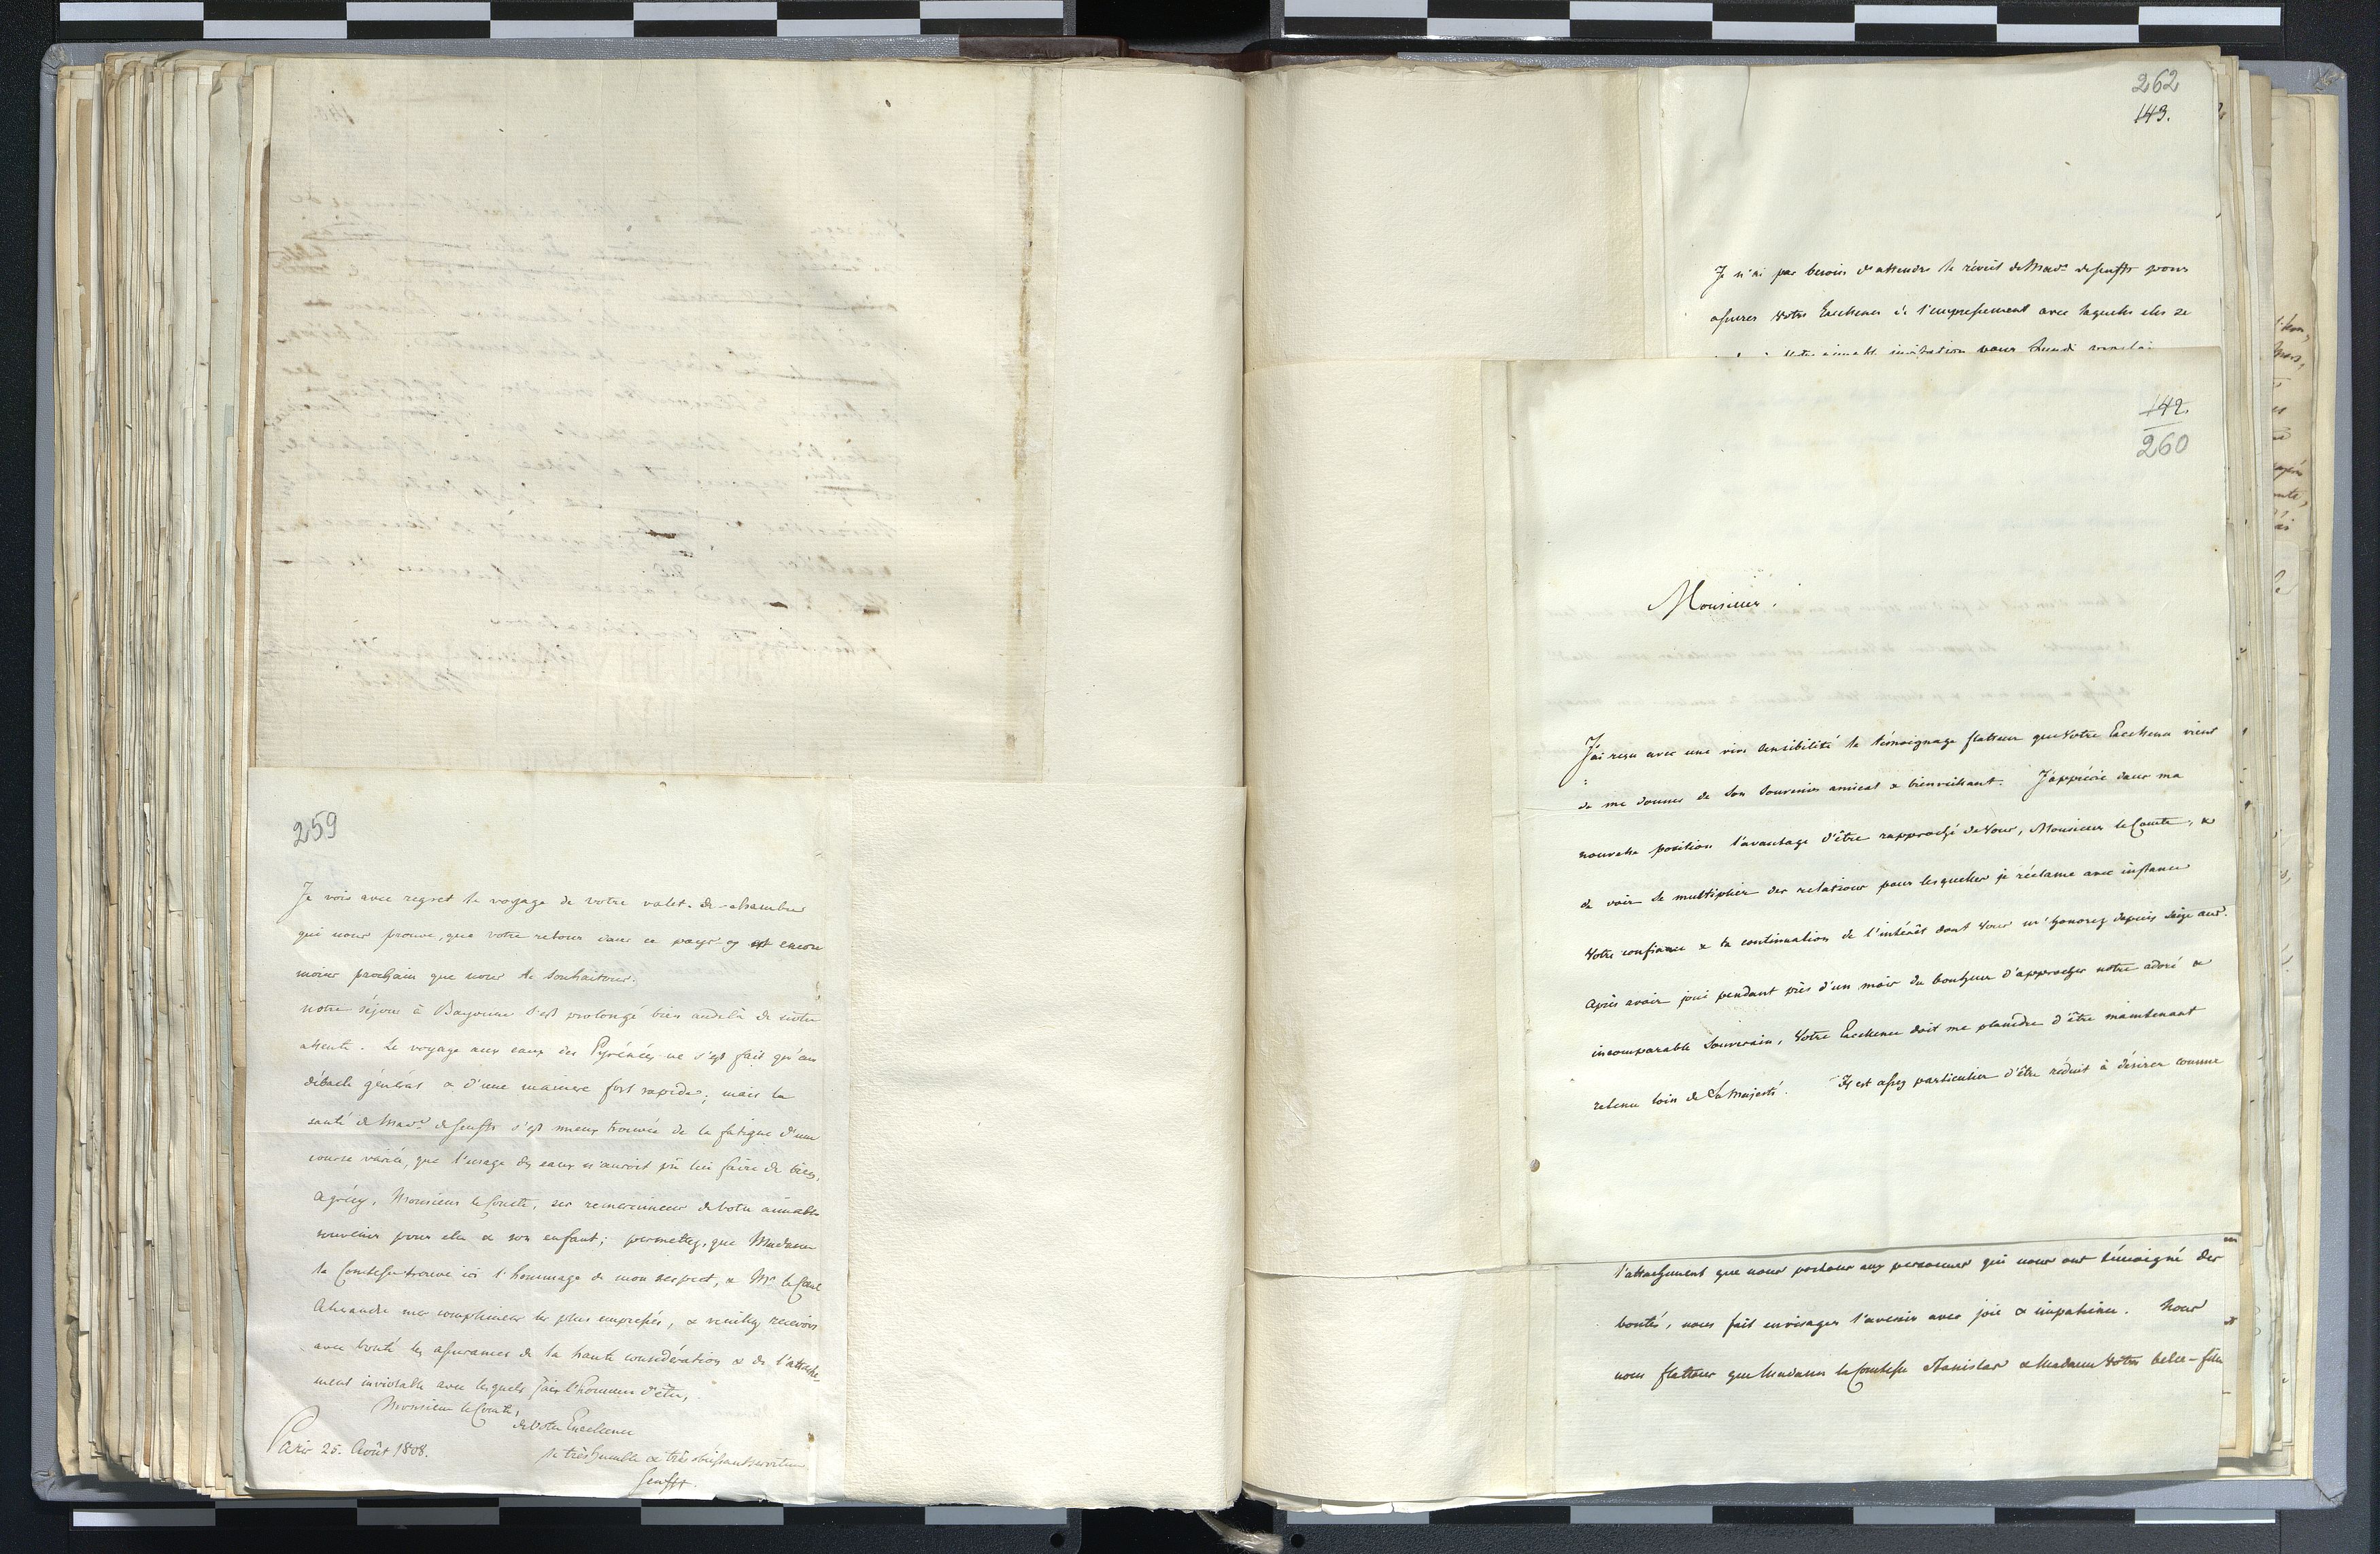 259
Je vois avec regret le voyage de votre valet-de-chambre
qui nous prouve, que votre retour dans ce pays-cy est encore
moins prochain que nous le souhaitons.
notre séjour à Bayonne s'est prolongé bien audelà de notre
attente. Le voyage aux eaux des Pyrénées ne s'est fait qu'au
débacle général & d'une maniere fort rapide; mais la
santé de Made de Senfft s'est mieux trouvée de la fatigue d'une
course variée, que l'usage des eaux n'auroit pû lui faire de bien.
agréez, Monsieur le Comte, ses remerciemens de votre aimable
souvenir pour elle & son enfant; permettez, que Madame
la Comtesse trouve ici l'hommage de mon respect, & Mr le Comte
Alexandre mes complimens les plus empressés, & veuillez recevoir
avec bonté les assurances de la haute considération & de l'attache-
ment inviolable avec lesquels j'ai l'honneur d'être,
Monsieur le Comte,
de Votre Excellence
le très humble & très obéissant serviteur
Paris 25. Août 1808.
Senfft.
262
143.
Je n'ai pas besoin d'attendre le réveil de Made de Senfft pour
assurer Votre Excellence de l'empressement avec laquelle elle se
aimable invitation pour Lundi
142.
260
Monsieur,
J'ai reçu avec une vive sensibilité le témoignage flatteur que Votre Excellence vient
de me donner de Son Souvenir amical & bienveillant. J'apprécie dans ma
nouvelle position l'avantage d'être rapproché de Vous, Monsieur le Comte, &
de voir se multiplier des relations pour lesquelles je réclame avec instance
Votre confiance & la continuation de l'intérêt dont Vous m'honorez depuis seize ans.
Après avoir joui pendant près d'un mois du bonheur d'approcher notre adoré &
incomparable Souverain, Votre Excellence doit me plaindre d'être maintenant
retenu loin de Sa Majesté. Il est assez particulier d'être réduit à désirer comme
l'attachement que nous portons aux personnes qui nous ont témoigné des
bontés, nous fait envisager l'avenir avec joie & impatience. Nous
nous flattons que Madame la Comtesse Stanislas & Madame Votre belle-fille